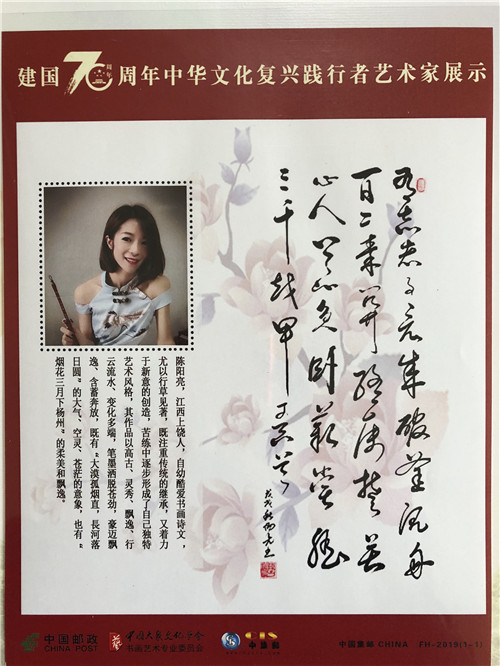 建国70周年中华文化复兴践行者艺术家展示
有志者事竟成破釜沉舟
百二秦关终属楚苦
心人天不负卧薪尝胆
三千越甲可吞吴
陈阳亮，江西上饶人，自幼酷爱书画诗文，
尤以行草见著，既注重传统的继承，又着力
于新意的创造，苦练中逐步形成了自己独特
艺术风格，其作品以高古、灵秀、飘逸、行
云流水、变化多端，笔墨洒脱苍劲，豪迈飘
逸、含蓄奔放，既有“大漠孤烟直，長河落
日圆”的大气、空灵、苍茫的意象，也有“
烟花三月下杨州”的柔美和飘逸。
中国邮政
CHINA POST
中国大众文化学会
书画艺术专业委员会
中国集邮 CHINA FH-2019(1-1)